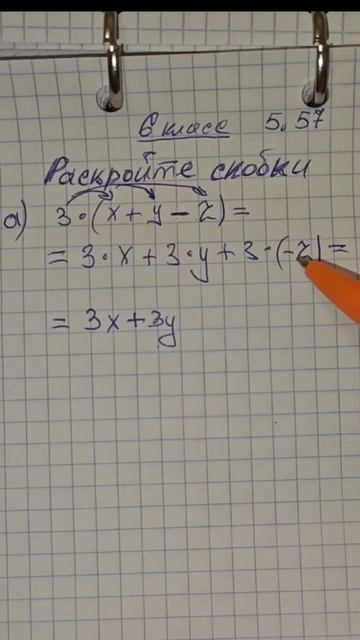 6 класс 5.57
Раскройте скобки
а) 3·(x+y−z)=
=3·x+3·y+3·(−z)=
=3x+3y